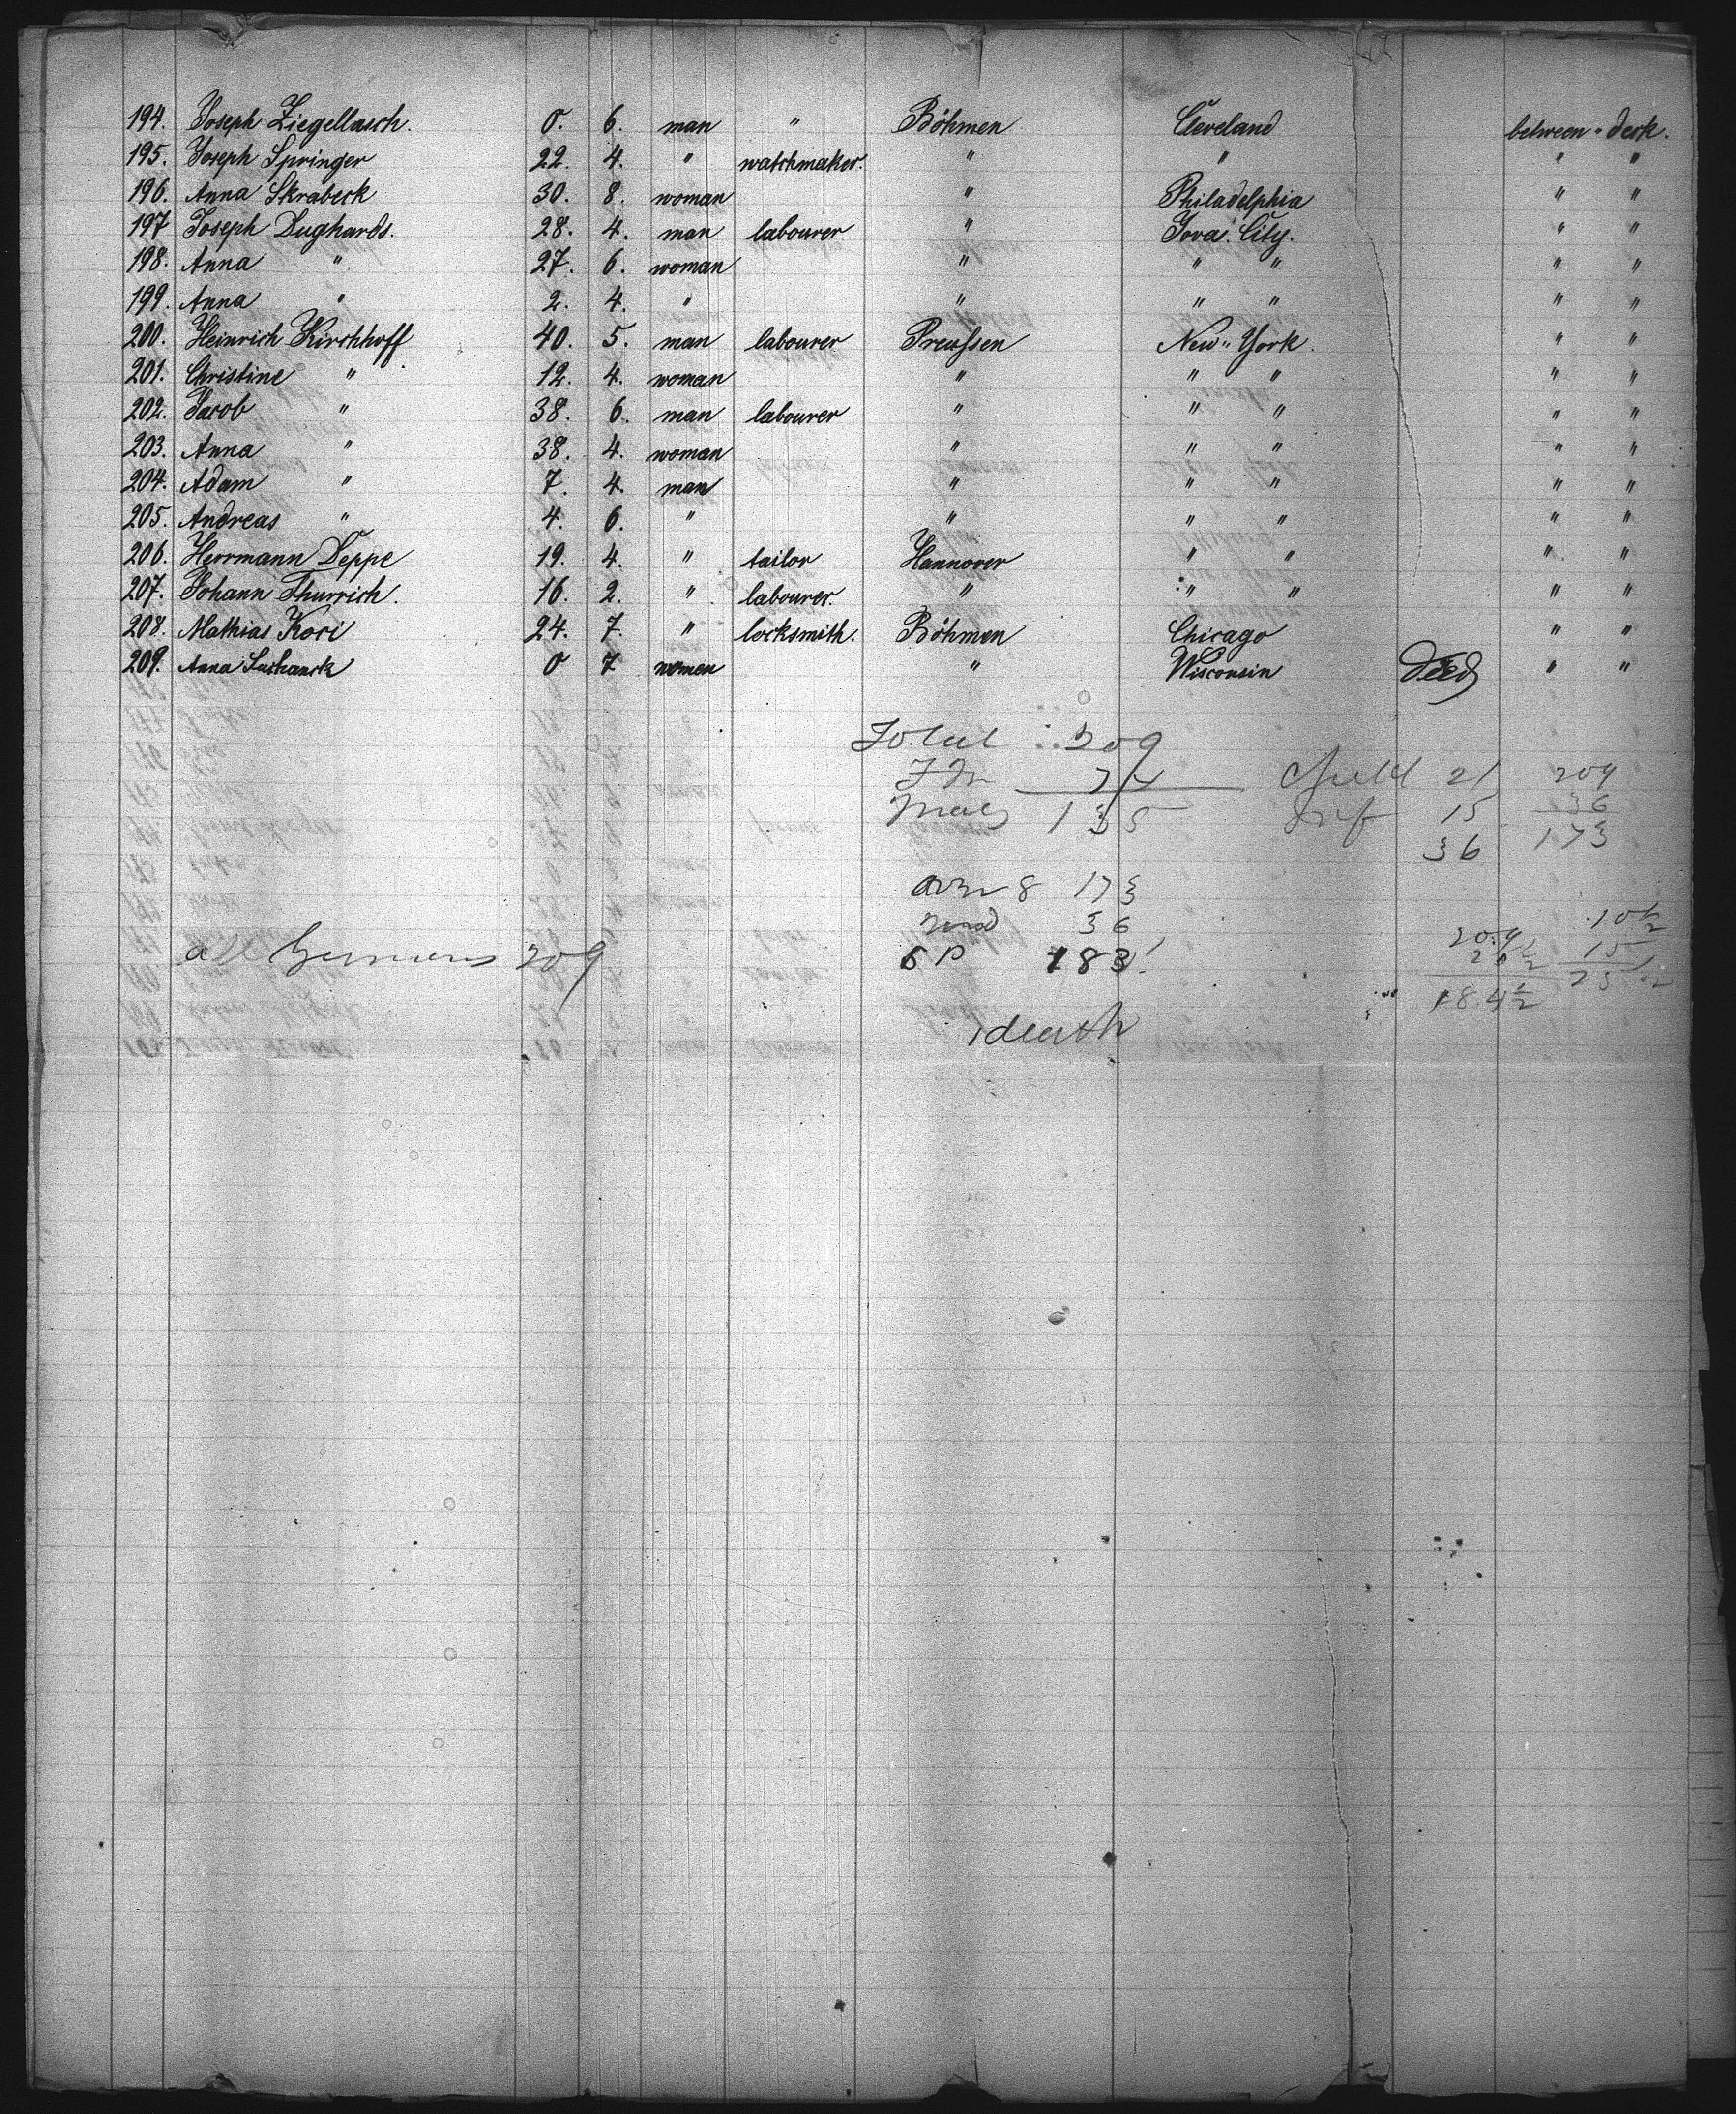 194. Joseph Ziegellasch. 0. 6. man " Böhmen Cleveland between " deck.
195. Joseph Springer 22. 4. " watchmaker. " " " "
196. Anna Skrabeck 30. 8. woman " Philadelphia " "
197 Joseph Dughards. 28. 4. man labourer " Jova. City. " "
198. Anna " 27. 6. woman " " " " "
199. Anna " 2. 4. " " " " " "
200. Heinrich Kirchhoff 40. 5. man labourer Preussen New " York. " "
201. Christine " 12. 4. woman " " " " "
202. Jacob " 38. 6. man labourer " " " " "
203. Anna " 38. 4. woman " " " " "
204. Adam " 7. 4. man " " " " "
205. Andreas " 4. 6. " " " " " "
206. Herrmann Deppe 19. 4. " tailor Hannover " " " "
207. Johann Thurrich. 16. 2. " labourer. " " " " "
208. Mathias Kori 24. 7. " locksmith. Böhmen Chicago " "
209. Anna Suchanek 0 7 women " Wisconsin died " "
Total 209
Fm 74 Child 21 209
Males 135 Inf 15 36
36 173
over 8 173
und 36 10½
all Germans 209 209 15
SP 183 25½ 25½
184½
1 death